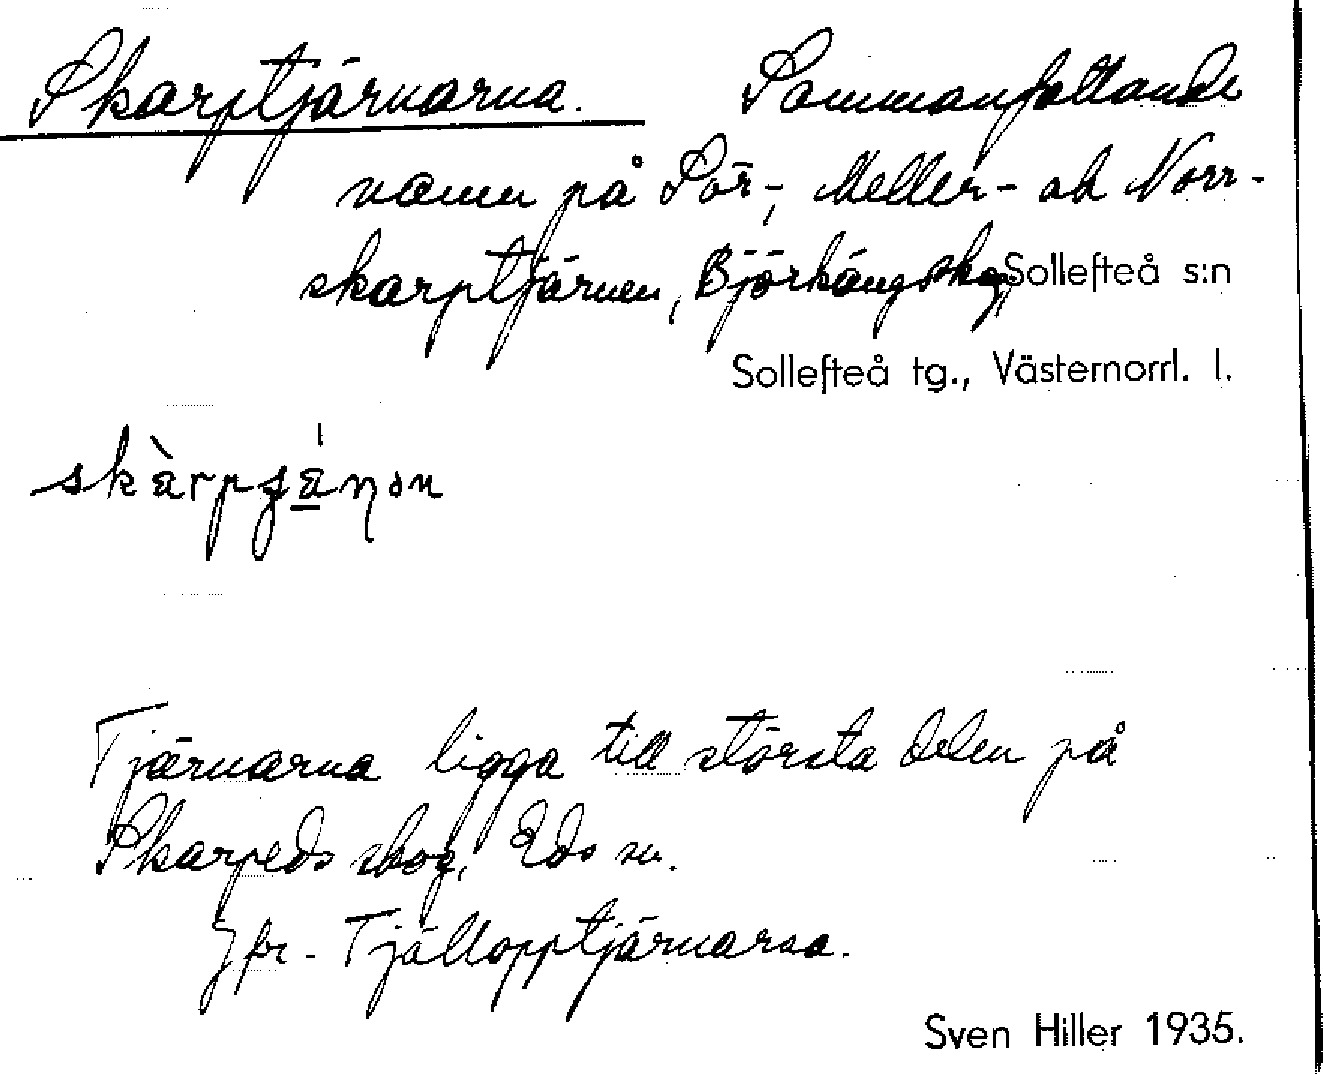 Skarptjärnarna. Sammanfattande
namn på Sör-, Meller- och Norr-
skarptjärnen, Björkängs skog,
Sollefteå s:n
Sollefteå tg., Västernorrl. l.
Tjärnarna ligga till största delen på
Skarpeds skog, Eds sn.
Jfr. Tjällopptjärnarna.
Sven Hiller 1935.